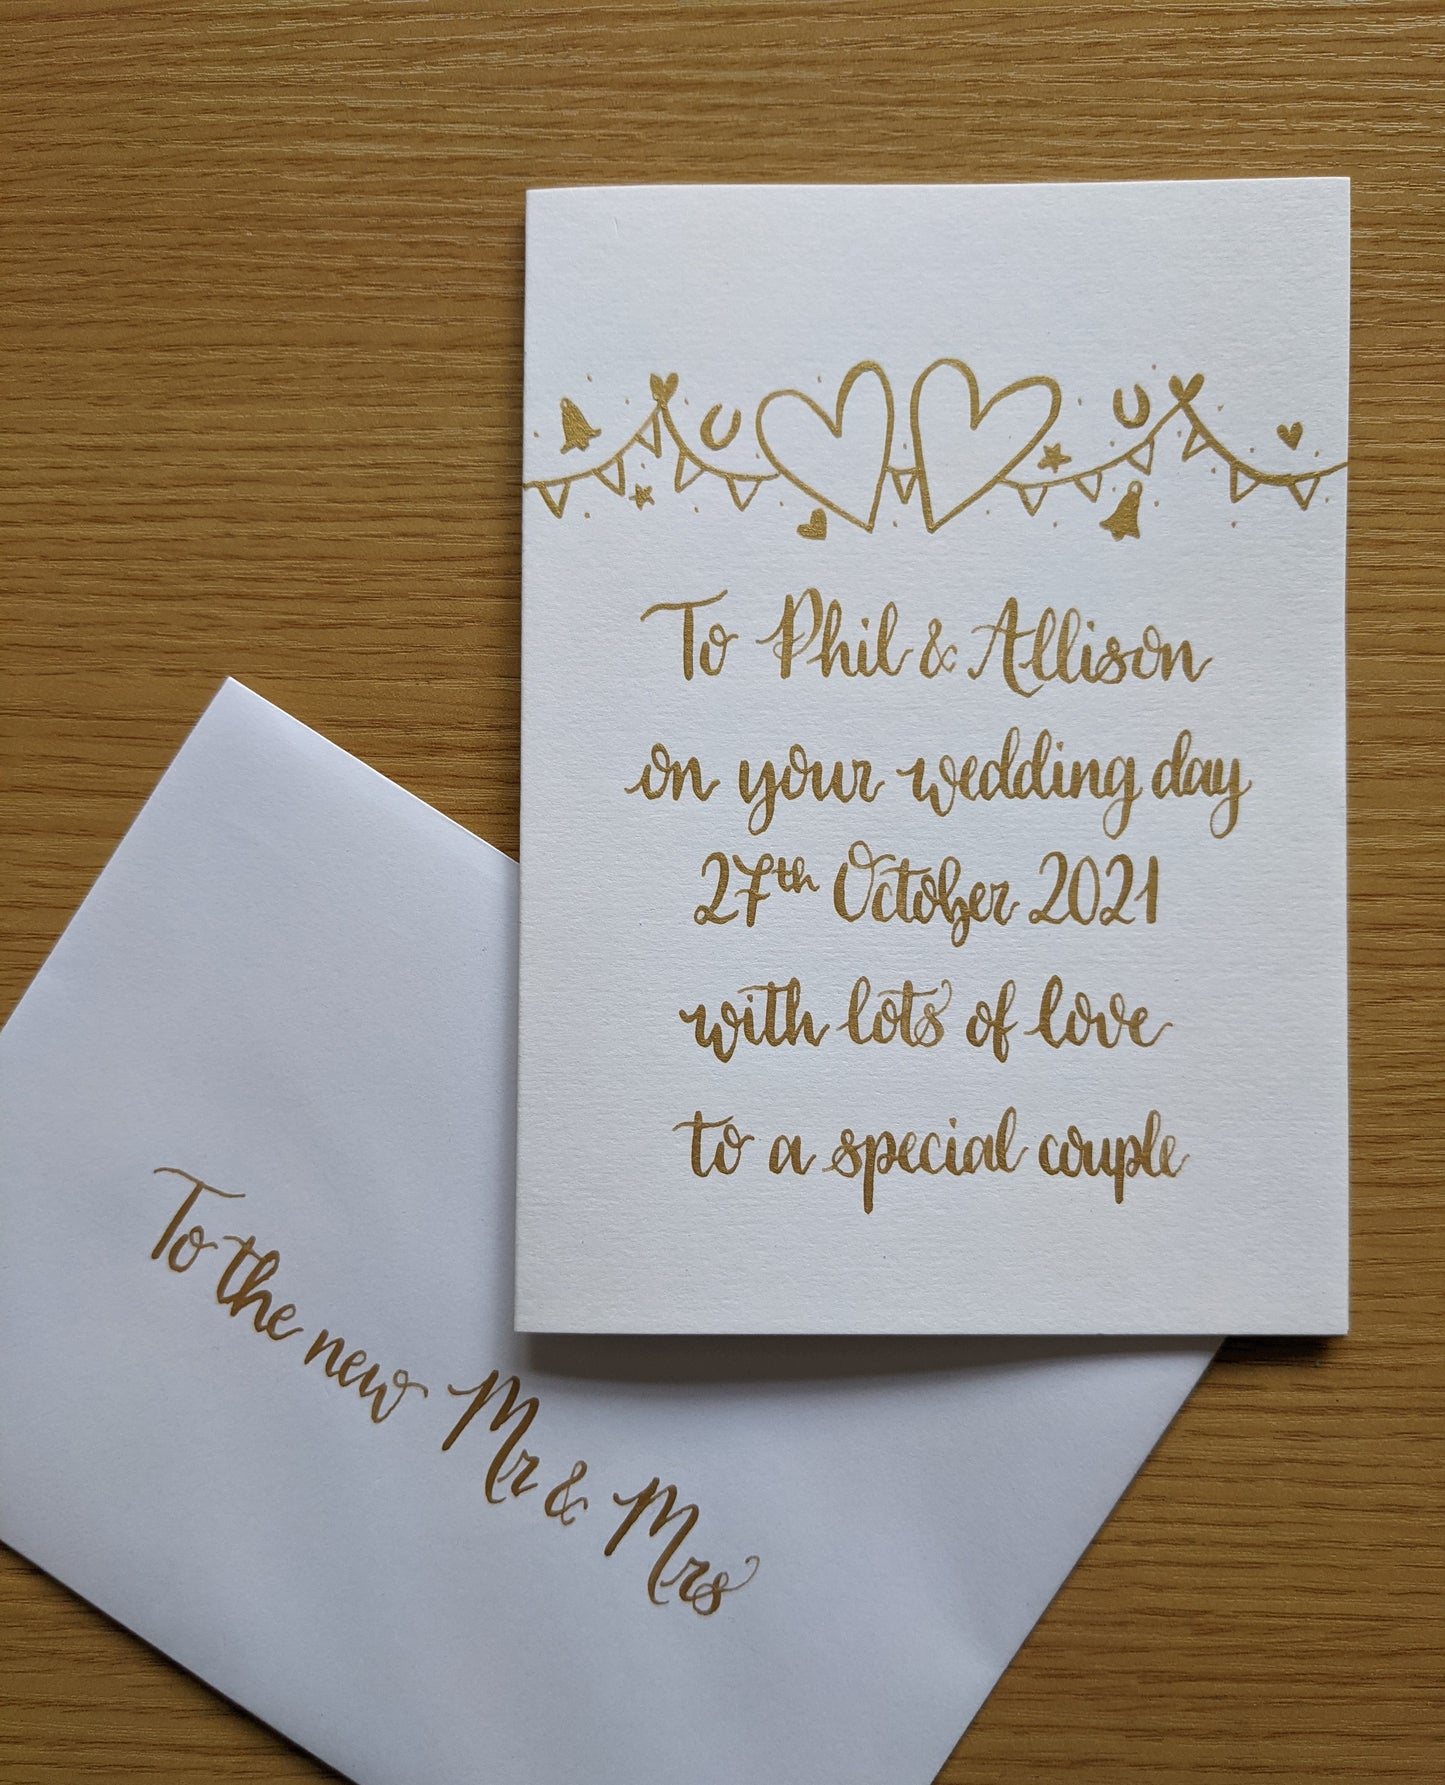 To Phil & Allison
on your wedding day
27th October 2021
with lots of love
to a special couple
To the new Mr & Mrs